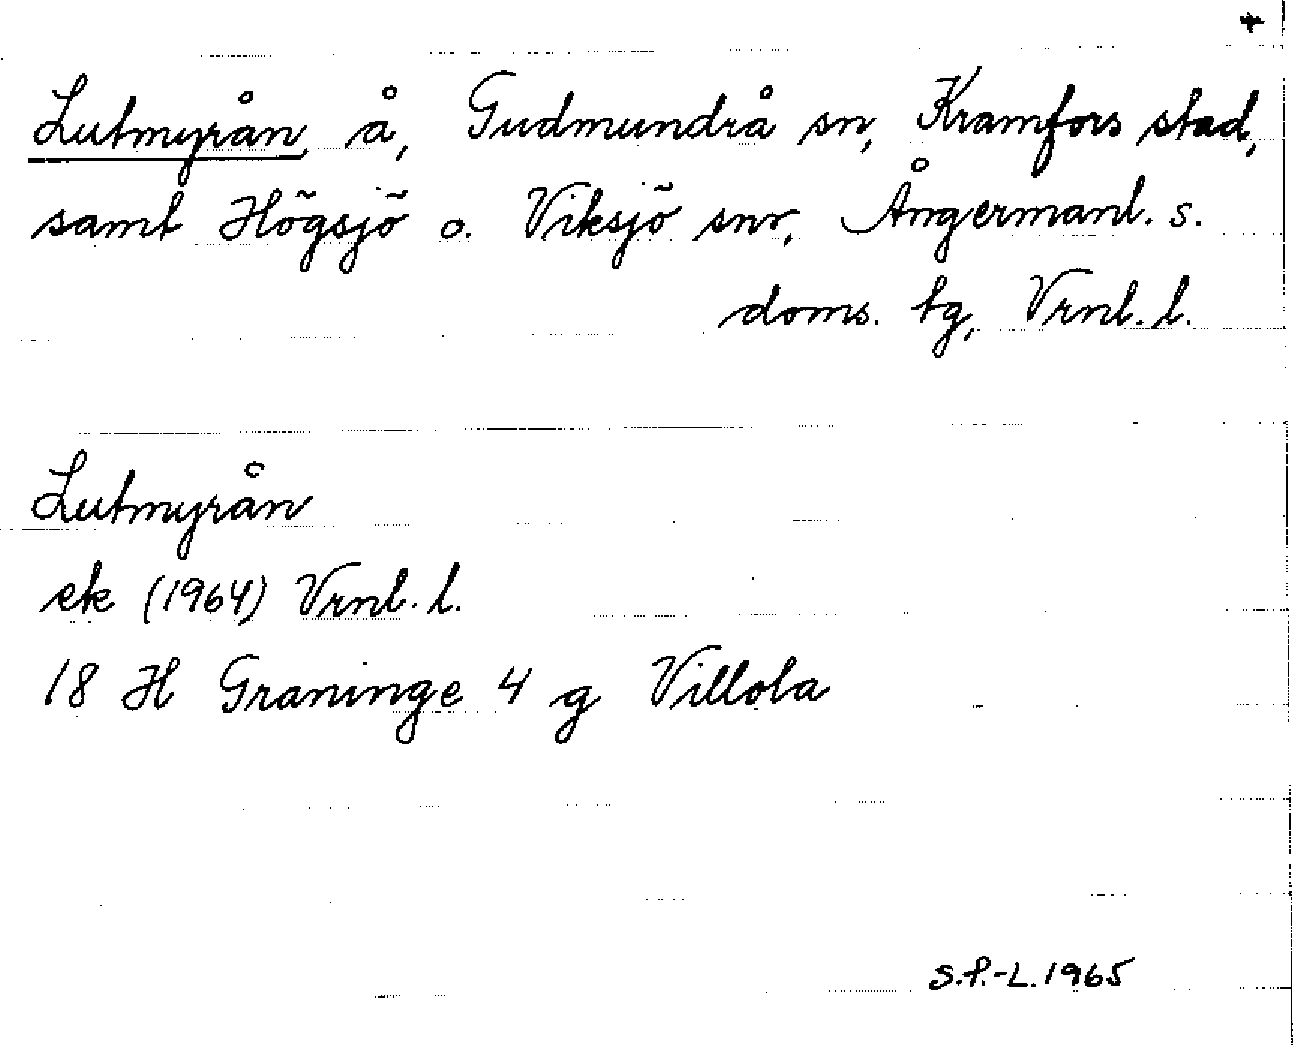 +
Lutmyrån, å, Gudmundrå sn, Kramfors stad,
samt Högsjö o. Viksjö snr, Ångermanl. s.
doms. tg, Vrnl. l.
Lutmyrån
ek (1964) Vrnl. l.
18 H Graninge 4 g Villola
S.P.-L. 1965